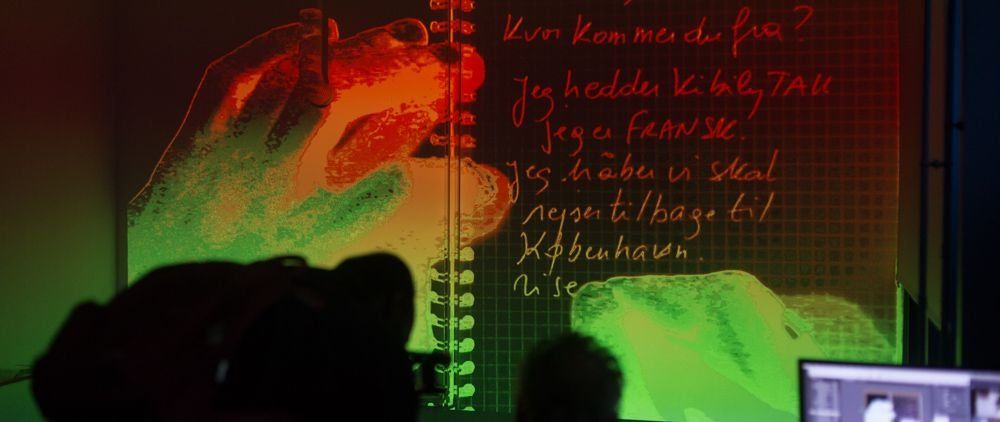 Kvor kommer du fra?
Jeg hedder Kibily TAK
Jeg er FRANSK.
Jeg håber vi skal
rejser tilbage til
København.
vi se